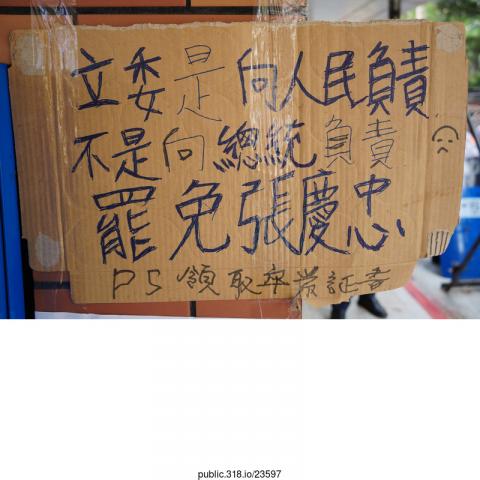 立委是向人民負責
不是向總統負責
罷免張慶忠
PS 領取卒業証書
public.318.io/23597